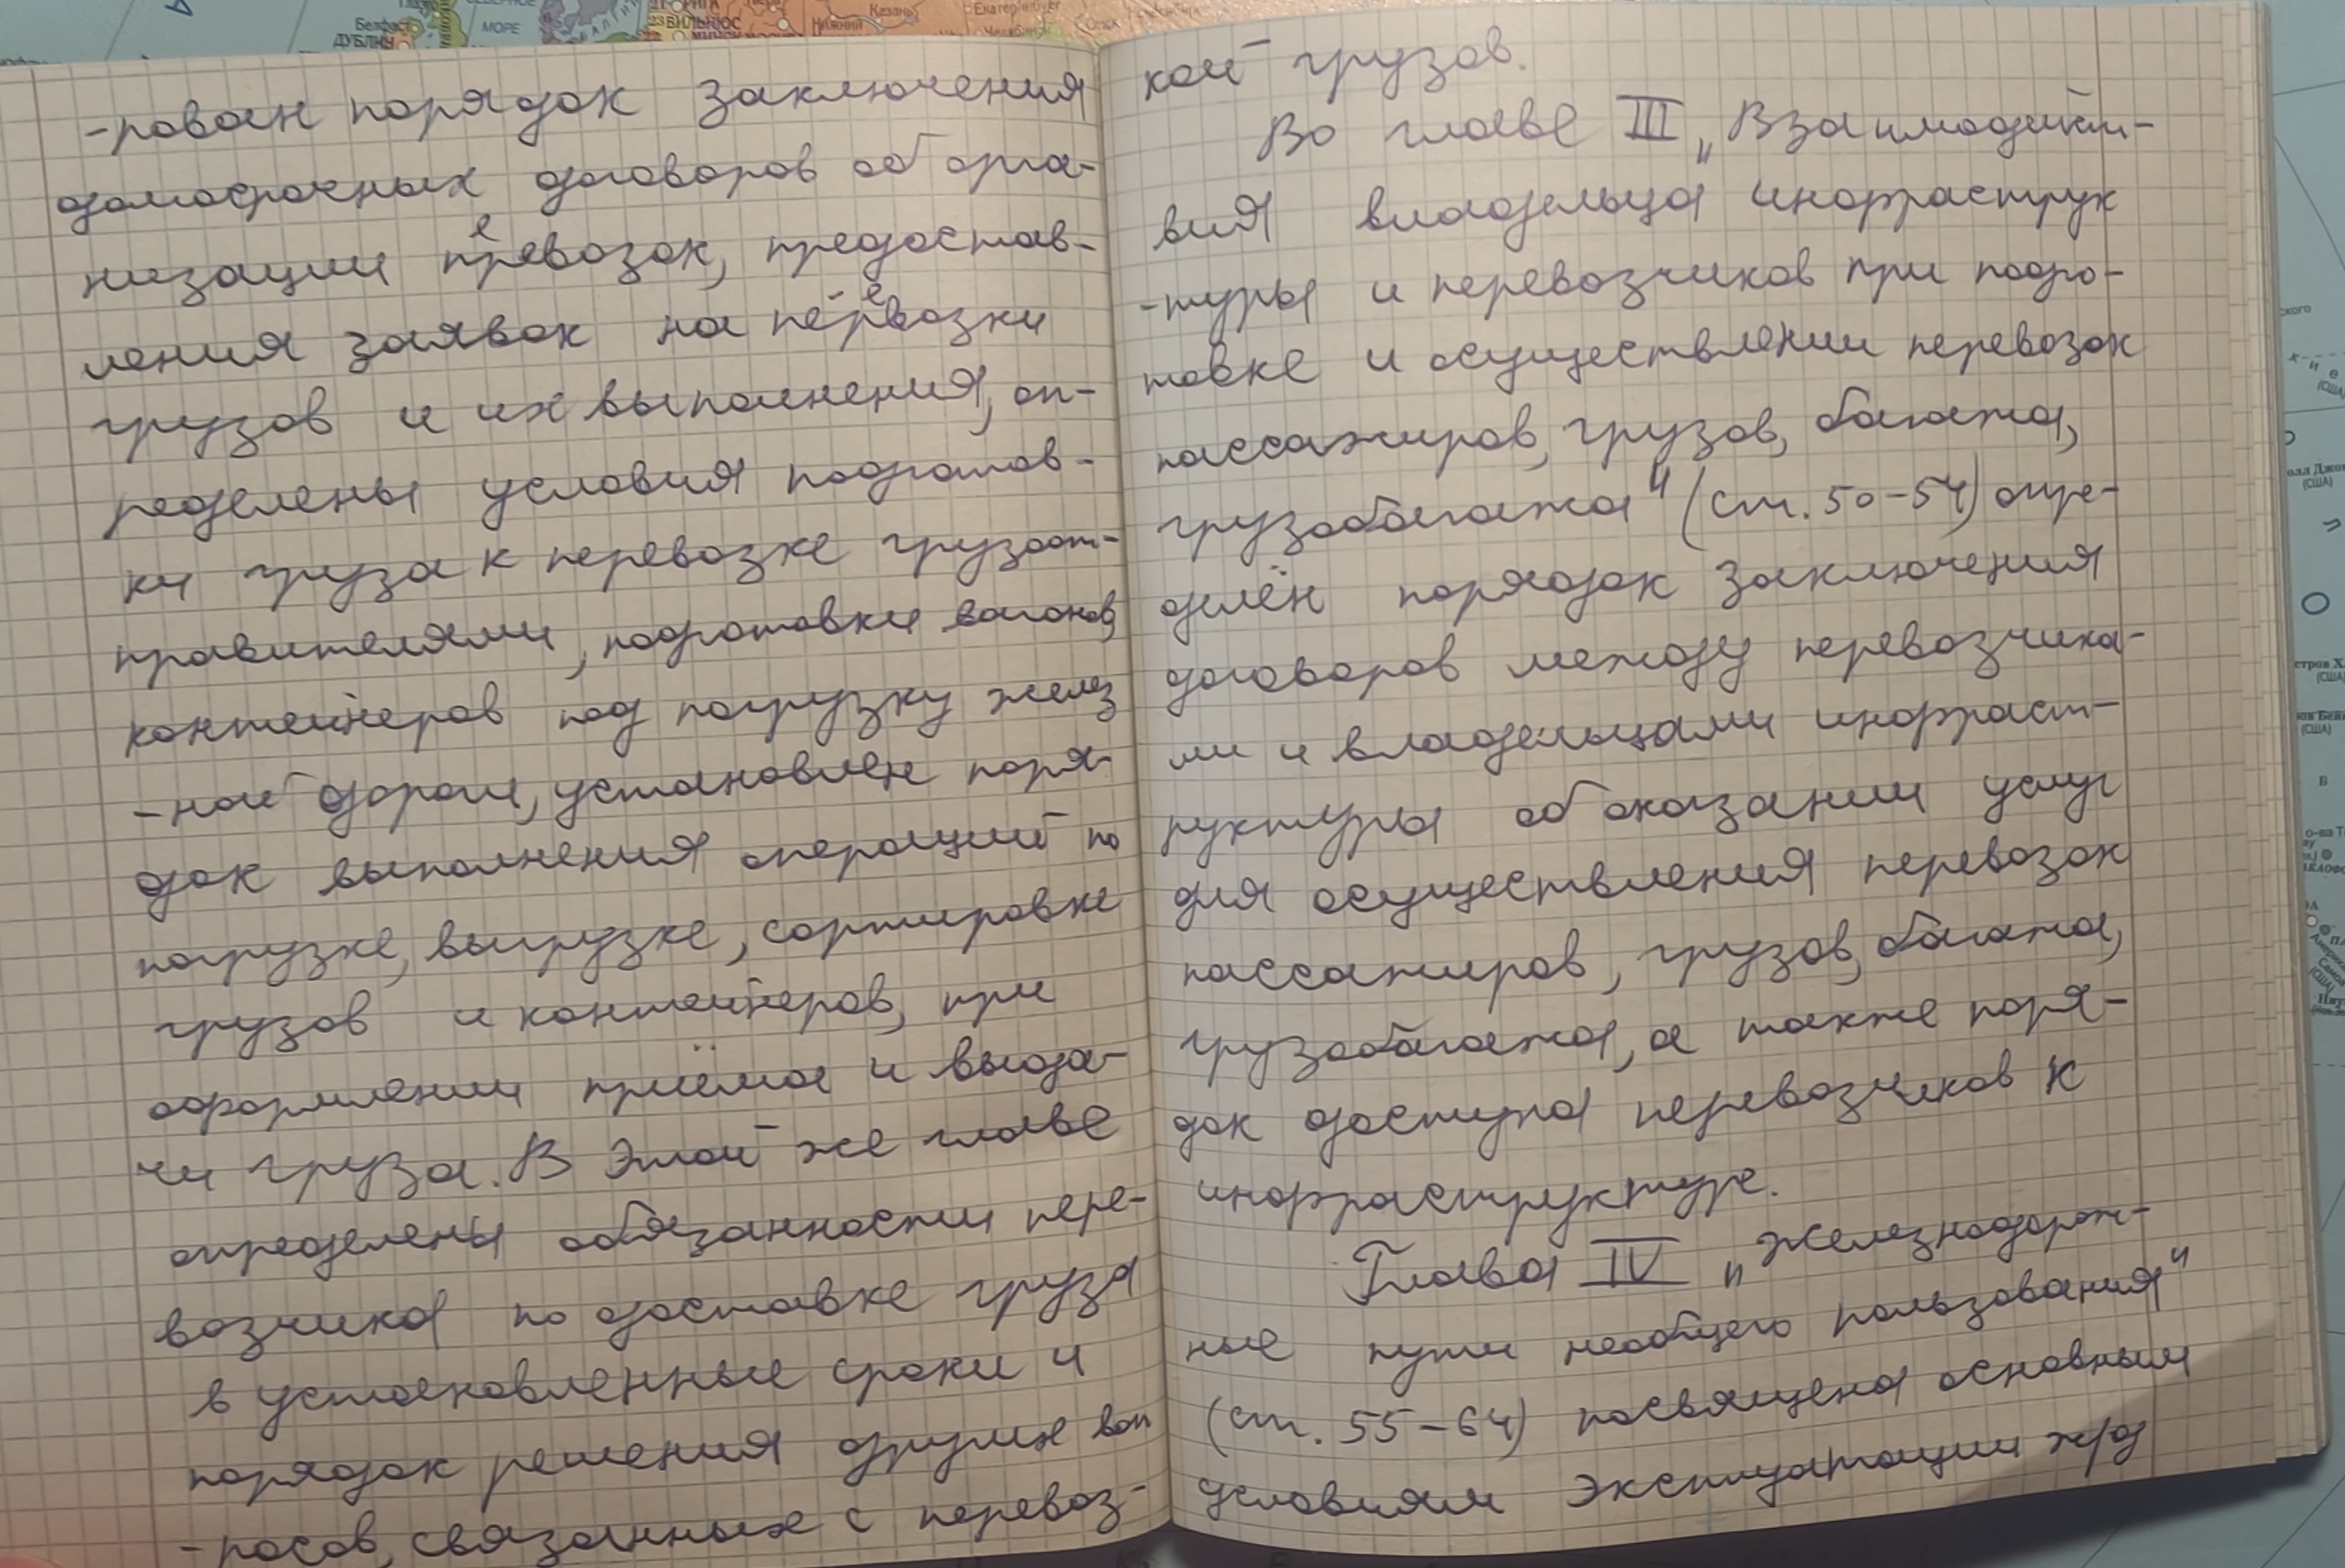 -рован порядок заключения
долгосрочных договоров об орга-
низации перевозок, предостав-
ления заявок на перевозки
грузов и их выполнения, оп-
ределены условия подготов-
ки груза к перевозке грузоот-
правителями, подготовки вагонов,
контейнеров под погрузку желез
-ной дороги, установлен поря-
док выполнения операций по
погрузке, выгрузке, сортировке
грузов и контейнеров, при
оформлении приёма и выда-
чи груза. В этой же главе
определены обязанности пере-
возчика по доставке груза
в установленные сроки и
порядок решения других воп
-росов, связанных с перевоз-
кой грузов.
Во главе III „Взаимодейст-
вия владельца инфраструк
-туры и перевозчиков при подго-
товке и осуществлении перевозок
пассажиров, грузов, багажа,
грузобагажа" (ст. 50-54) опре-
делён порядок заключения
договоров между перевозчика-
ми и владельцами инфраст-
руктуры об оказании услуг
для осуществления перевозок
пассажиров, грузов, багажа,
грузобагажа, а также поря-
док доступа перевозчиков к
инфраструктуре.
Глава IV „Железнодорож-
ные пути необщего пользования"
(ст. 55-64) посвящена основным
условиям эксплуатации ж/д
Белфаст
ДУБЛИН
МОРЕ
РИГА
ВИЛЬНЮС
МИНСК
МОСКВА
Казань
Нижний
Екатеринбург
Челябинск
Омск